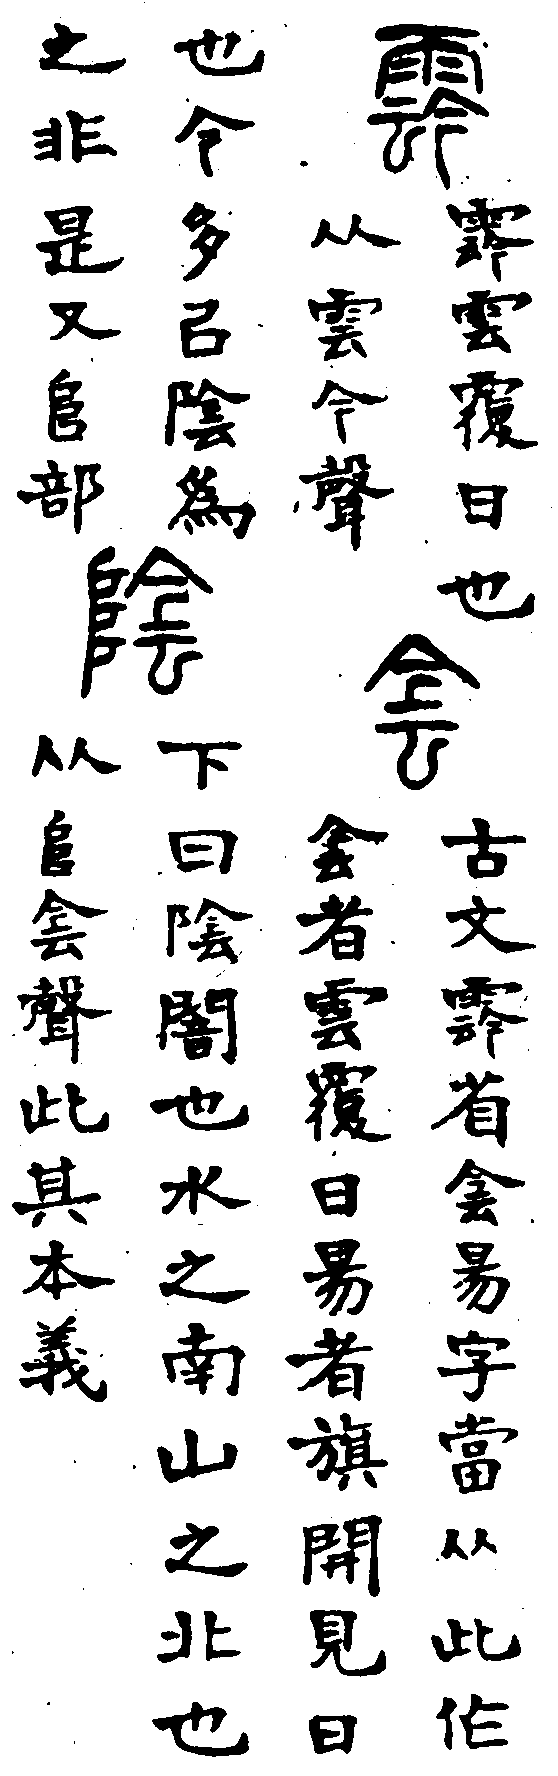 霒
霒雲覆日也
从雲今聲
侌
古文霒省侌昜字當从此作
侌者雲覆日昜者旗開見日
也今多㠯陰為
之非是又𨸏部
陰
下曰陰闇也水之南山之北也
从𨸏侌聲此其本義